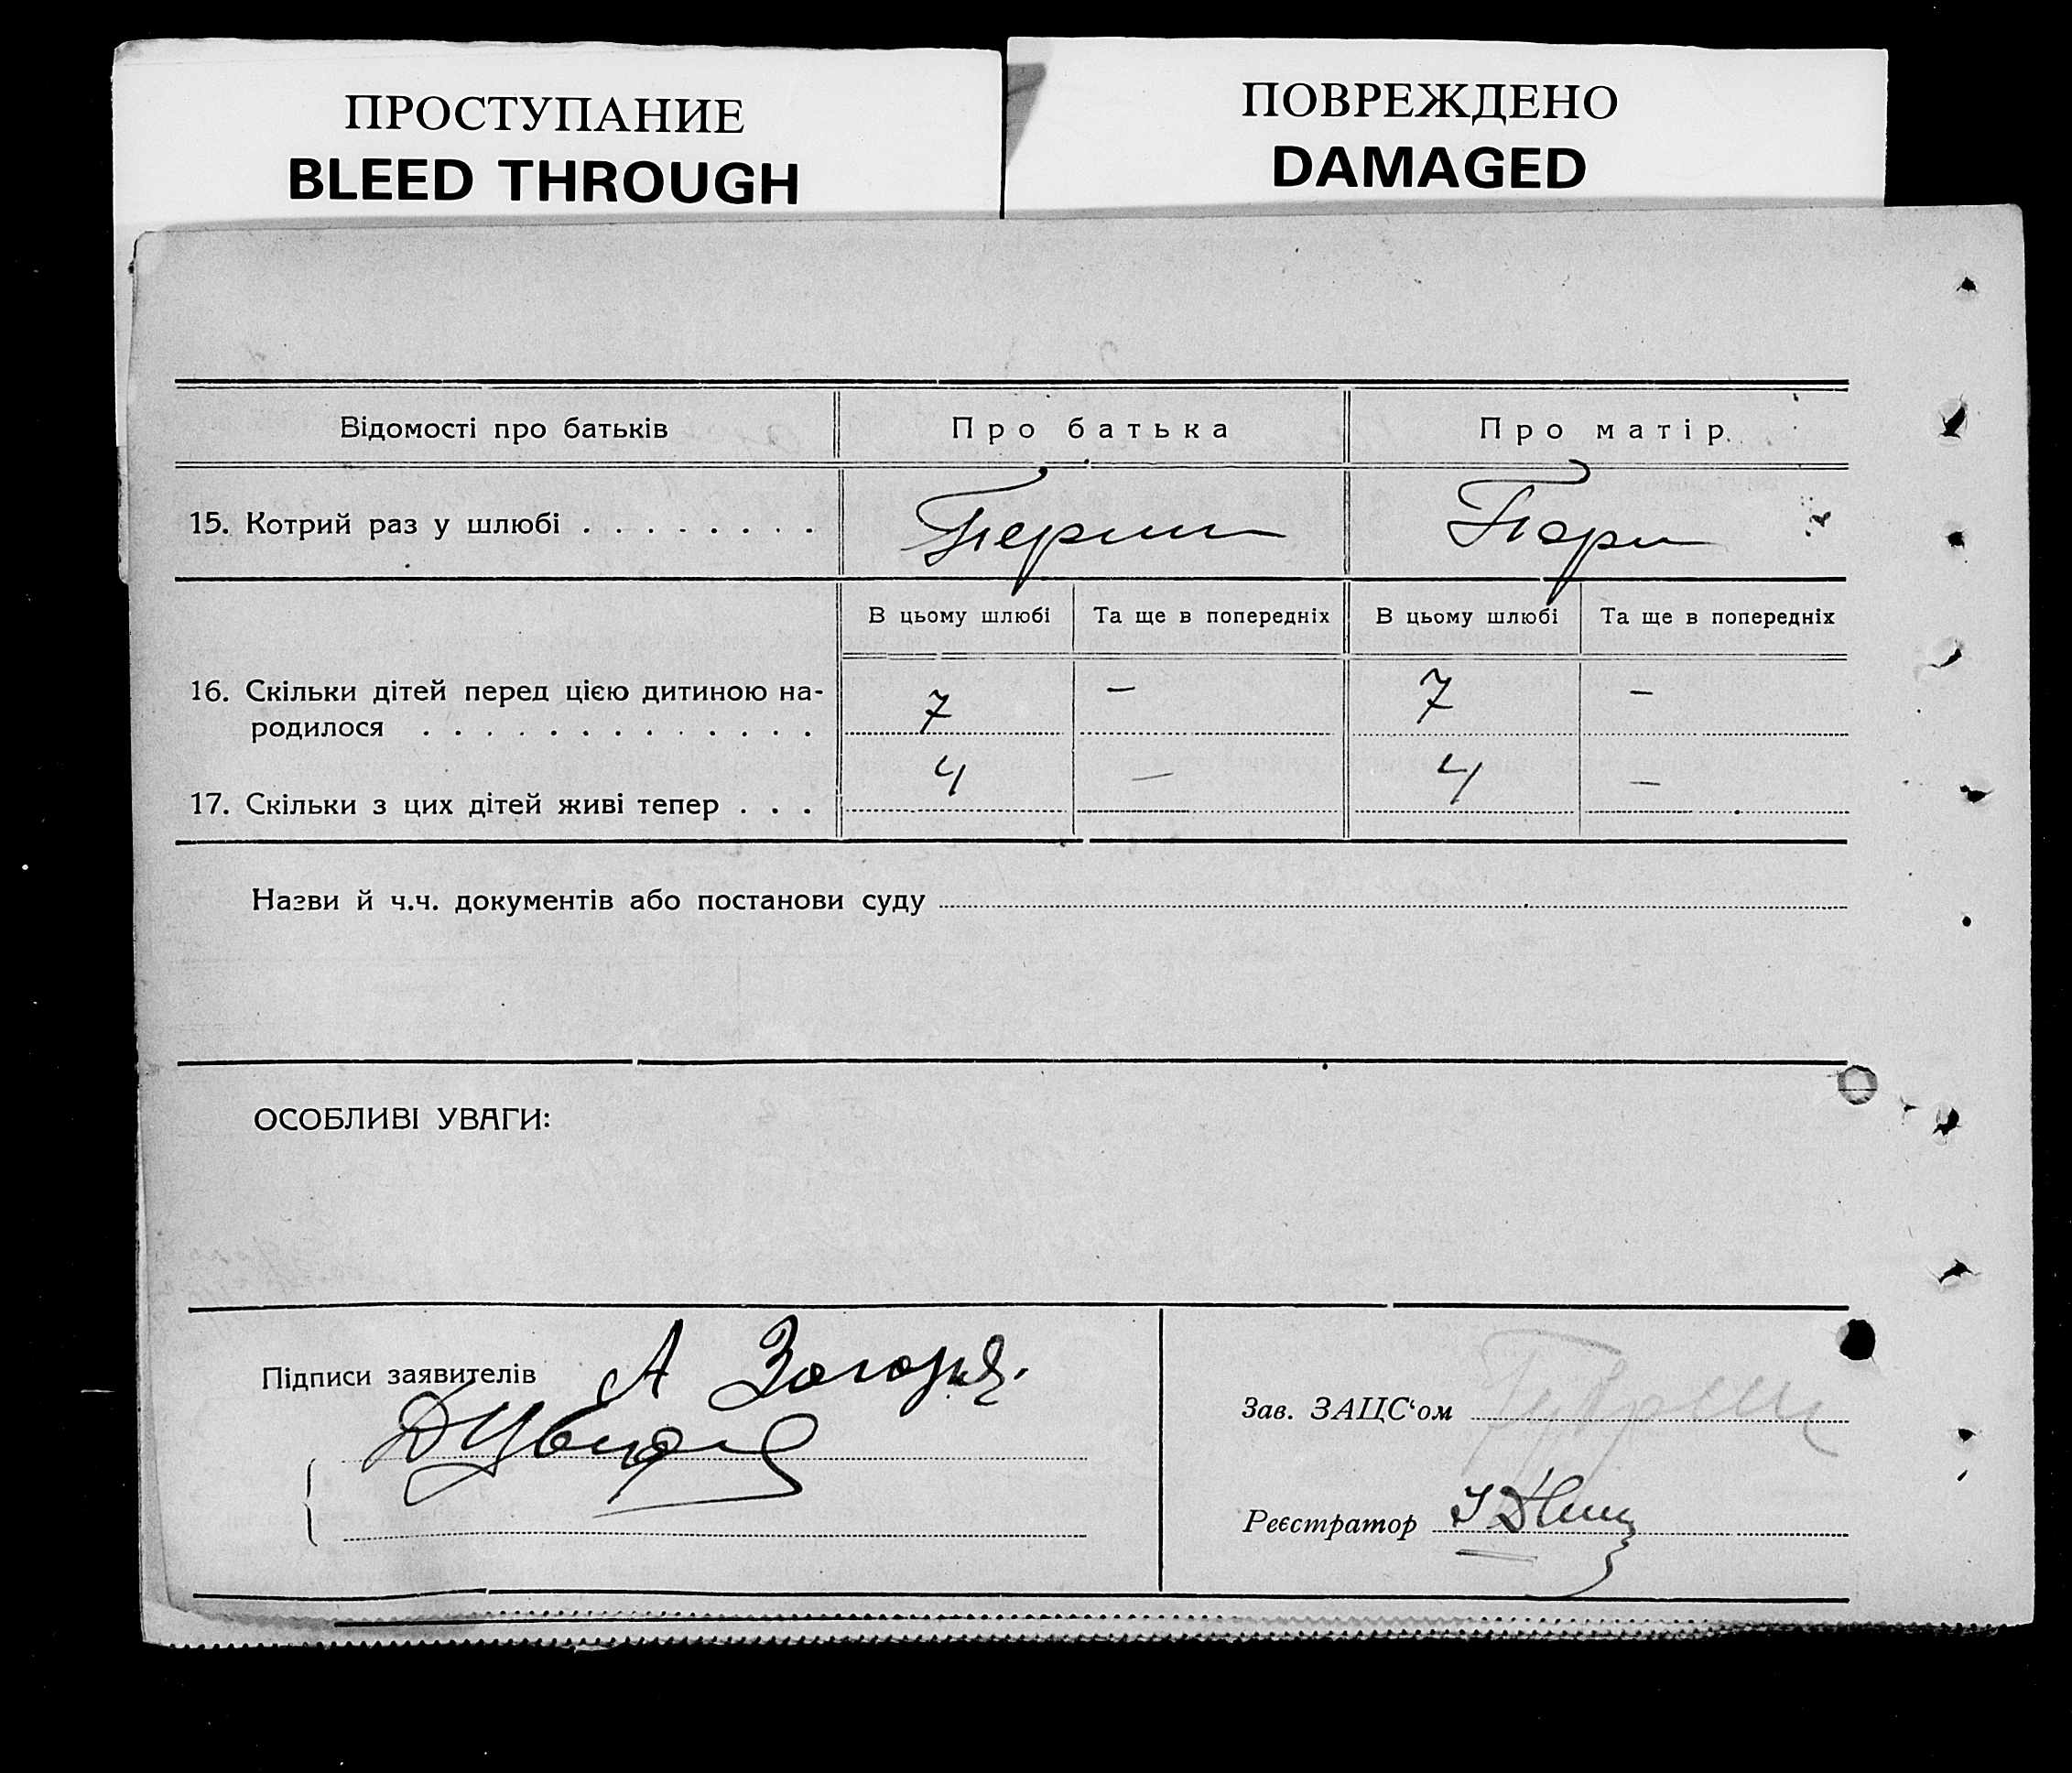 ПРОСТУПАНИЕ
BLEED THROUGH
ПОВРЕЖДЕНО
DAMAGED
Відомості про батьків Про батька Про матір
15. Котрий раз у шлюбі . . . . . . . .
В цьому шлюбі Та ще в попередніх В цьому шлюбі Та ще в попередніх
16. Скільки дітей перед цією дитиною на-
родилося . . . . . . . . . . . . . 7 — 7 —
17. Скільки з цих дітей живі тепер . . . 4 — 4 —
Назви й ч.ч. документів або постанови суду
ОСОБЛИВІ УВАГИ:
Підписи заявителів А
Зав. ЗАЦС‘ом
Реєстратор